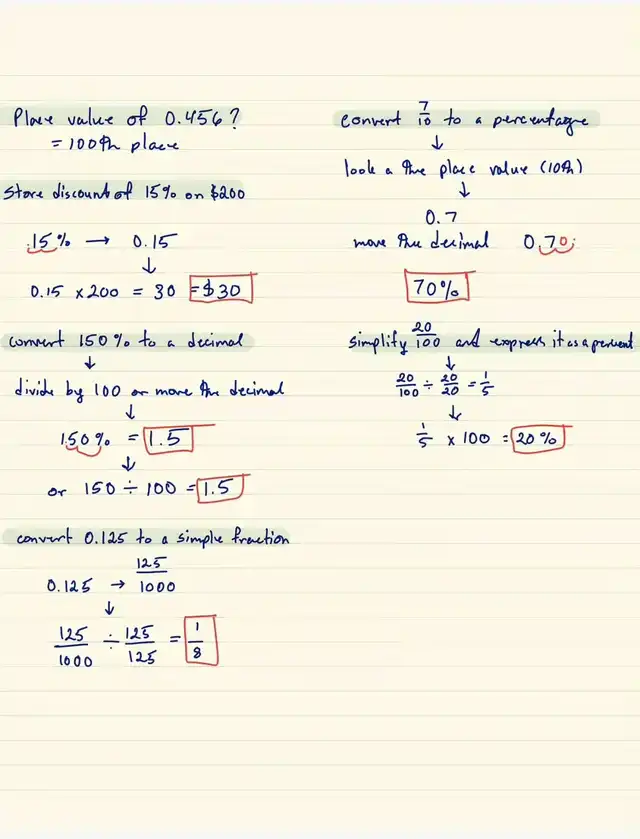 Place value of 0.456?
= 100th place
Store discount of 15% on $200
15% → 0.15
↓
0.15 × 200 = 30 = $30
convert 150% to a decimal
↓
divide by 100 or move the decimal
↓
150% = 1.5
↓
or 150 ÷ 100 = 1.5
convert 0.125 to a simple fraction
0.125 → 125/1000
↓
125/1000 ÷ 125/125 = 1/8
convert 7/10 to a percentage
↓
look a the place value (10th)
↓
0.7
move the decimal 0.70.
70%
simplify 20/100 and express it as a percent
↓
20/100 ÷ 20/20 = 1/5
↓
1/5 × 100 = 20%